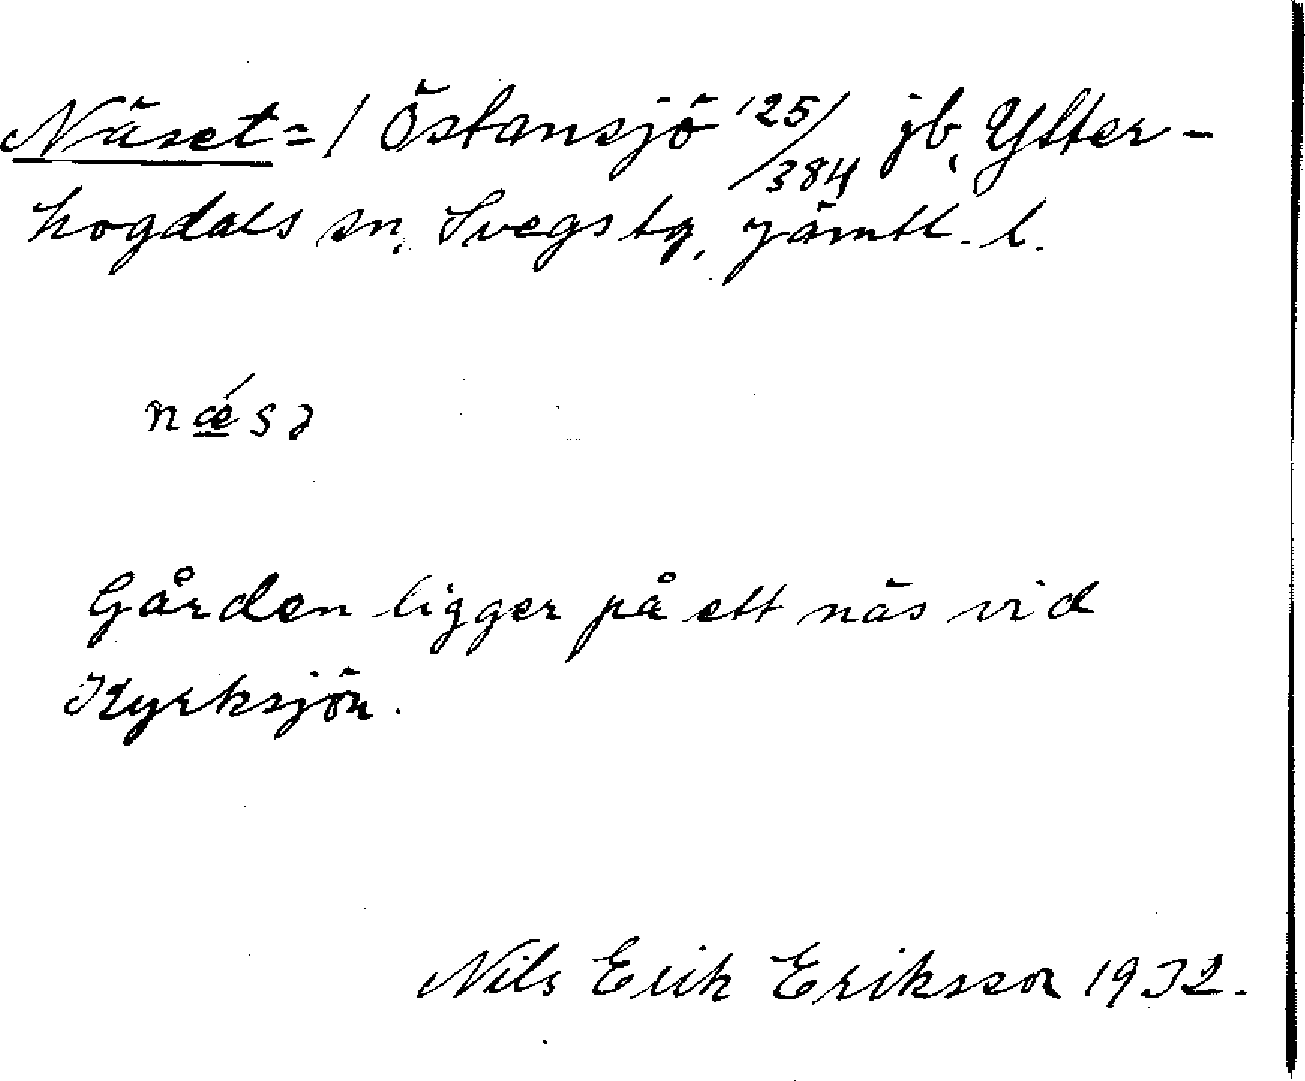 Näset = / Östansjö 125/384 jb, Ytter-
hogdals sn, Svegs tg, Jämtl. l.
nǽsə
Gården ligger på ett näs vid
Kyrksjön.
Nils Erik Eriksson 1932.